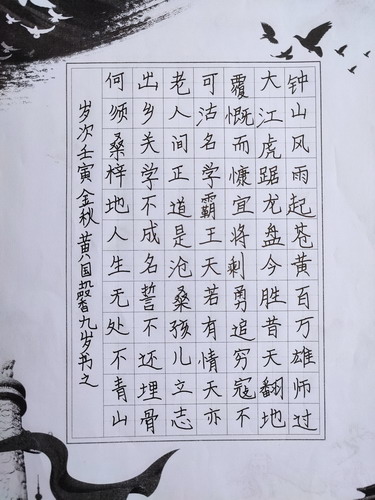 钟山风雨起苍黄百万雄师过
大江虎踞龙盘今胜昔天翻地
覆慨而慷宜将剩勇追穷寇不
可沽名学霸王天若有情天亦
老人间正道是沧桑孩儿立志
出乡关学不成名誓不还埋骨
何须桑梓地人生无处不青山
岁次壬寅金秋黄国馨九岁书之